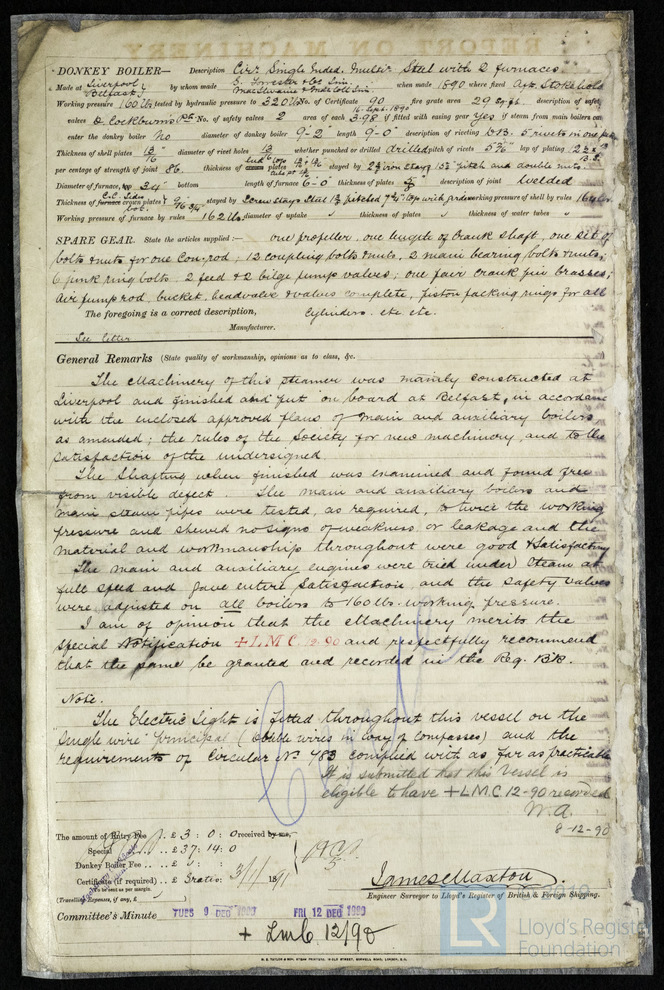 REPORT ON MACHINERY
DONKEY BOILER— Description Cirr Single Ended, Multr Steel with 2 furnaces
Made at Liverpool & Belfast, by whom made G. Forrester & Co Lim. when made 1890 where fixed Aft Stokehold
Working pressure 160 lbs tested by hydraulic pressure to 320 lbs No. of Certificate 90 fire grate area 29 sq ft description of safety
16 Sept. 1890
valves D. Cockburn's Pat No. of safety valves 2 area of each 3.98 if fitted with easing gear Yes if steam from main boilers can
enter the donkey boiler No diameter of donkey boiler 9'-2" length 9'-0" description of riveting 5 rivets in one
Thickness of shell plates 13/16 diameter of rivet holes 13/16 whether punched or drilled drilled pitch of rivets lap of plating
per centage of strength of joint 86. thickness of plates stayed by iron stays pitch and double nuts
Diameter of furnace, top 34" bottom length of furnace 6'-0" thickness of plates description of joint Welded
Thickness of furnace crown plates stayed by Screw Stays Steel pitched working pressure of shell by rules
Working pressure of furnace by rules 162 lbs. diameter of uptake " thickness of plates " thickness of water tubes "
SPARE GEAR. State the articles supplied:— one propeller, one length of Crank Shaft, one set of
bolts & nuts for one Con. rod, 12 coupling bolts & nuts, 2 main bearing bolts & nuts;
6 junk ring bolts, 2 feed & 2 bilge pump valves; one pair crank pin brasses;
Air pump rod, bucket, headvalve & valves complete, piston packing rings for all
The foregoing is a correct description, Cylinders. etc etc.
Manufacturer.
See letter
General Remarks (State quality of workmanship, opinions as to class, &c.
The Machinery of this steamer was mainly constructed at
Liverpool and finished and put on board at Belfast, in accordance
with the enclosed approved plans of main and auxiliary boilers
as amended; the rules of the Society for new machinery, and to the
satisfaction of the undersigned.
The Shafting when finished was examined and found free
from visible defect. The main and auxiliary boilers and
main steam pipes were tested, as required, to twice the working
pressure and shewed no signs of weakness or leakage and the
material and workmanship throughout were good & satisfactory
The main and auxiliary engines were tried under steam at
full speed and gave entire satisfaction and the safety valves
were adjusted on all boilers to 160 lbs. working pressure.
I am of opinion that the Machinery merits the
special Notification +LMC 12.90 and respectfully recommend
that the same be granted and recorded in the Reg. Bk.
Note.
The Electric Light is fitted throughout this vessel on the
single wire principal (double wires in way of compasses) and the
requirements of Circular No 483 complied with as far as practicable
It is submitted that this Vessel is
eligible to have +LMC 12-90 recorded
M.A.
8-12-90
The amount of Entry Fee .. £ 3 : 0 : 0 received by me,
Special .. £ 37 : 14 : 0
Donkey Boiler Fee .. £ : :
Certificate (if required) .. £ Gratis: 3/1/1891
(To be sent as per margin.)
(Travelling Expenses, if any, £ )
James Maxton
Engineer Surveyor to Lloyd's Register of British & Foreign Shipping.
Committee's Minute TUES 9 DEC 1890 FRI 12 DEC 1890
+ LMC 12/90
LR
Lloyd's Register
Foundation